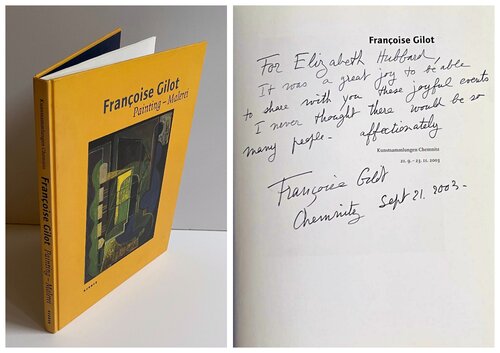 Françoise Gilot
Painting – Malerei
Kunstsammlungen Chemnitz
Françoise Gilot Painting – Malerei
KERBER
Françoise Gilot
For Elizabeth Hubbard
It was a great joy to be able
to share with you these joyful events
I never thought there would be so
many people. affectionately
Kunstsammlungen Chemnitz
21. 9. – 23. 11. 2003
Françoise Gilot
Chemnitz Sept 21. 2003-